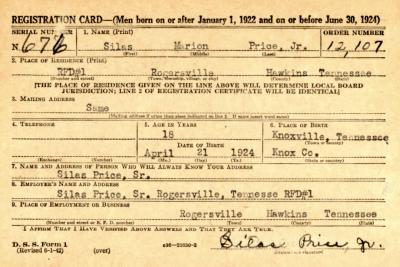 REGISTRATION CARD—(Men born on or after January 1, 1922 and on or before June 30, 1924)
SERIAL NUMBER 1. NAME (Print) ORDER NUMBER
N 676 Silas Marion Price, Jr. 12,107
(First) (Middle) (Last)
2. PLACE OF RESIDENCE (Print)
RFD#1 Rogersville Hawkins Tennessee
(Number and street) (Town, township, village, or city) (County) (State)
[THE PLACE OF RESIDENCE GIVEN ON THE LINE ABOVE WILL DETERMINE LOCAL BOARD
JURISDICTION; LINE 2 OF REGISTRATION CERTIFICATE WILL BE IDENTICAL]
3. MAILING ADDRESS
Same
(Mailing address if other than place indicated on line 2. If same insert word same)
4. TELEPHONE 5. AGE IN YEARS 6. PLACE OF BIRTH
18 Knoxville, Tennessee
DATE OF BIRTH (Town or county)
April 21 1924 Knox Co.
(Exchange) (Number) (Mo.) (Day) (Yr.) (State or country)
7. NAME AND ADDRESS OF PERSON WHO WILL ALWAYS KNOW YOUR ADDRESS
Silas Price, Sr.
8. EMPLOYER'S NAME AND ADDRESS
Silas Price, Sr. Rogersville, Tennesse RFD#1
9. PLACE OF EMPLOYMENT OR BUSINESS
Rogersville Hawkins Tennessee
(Number and street or R. F. D. number) (Town) (County) (State)
I AFFIRM THAT I HAVE VERIFIED ABOVE ANSWERS AND THAT THEY ARE TRUE.
D. S. S. Form 1
(Revised 6-1-42) (over) Silas Price, Jr.